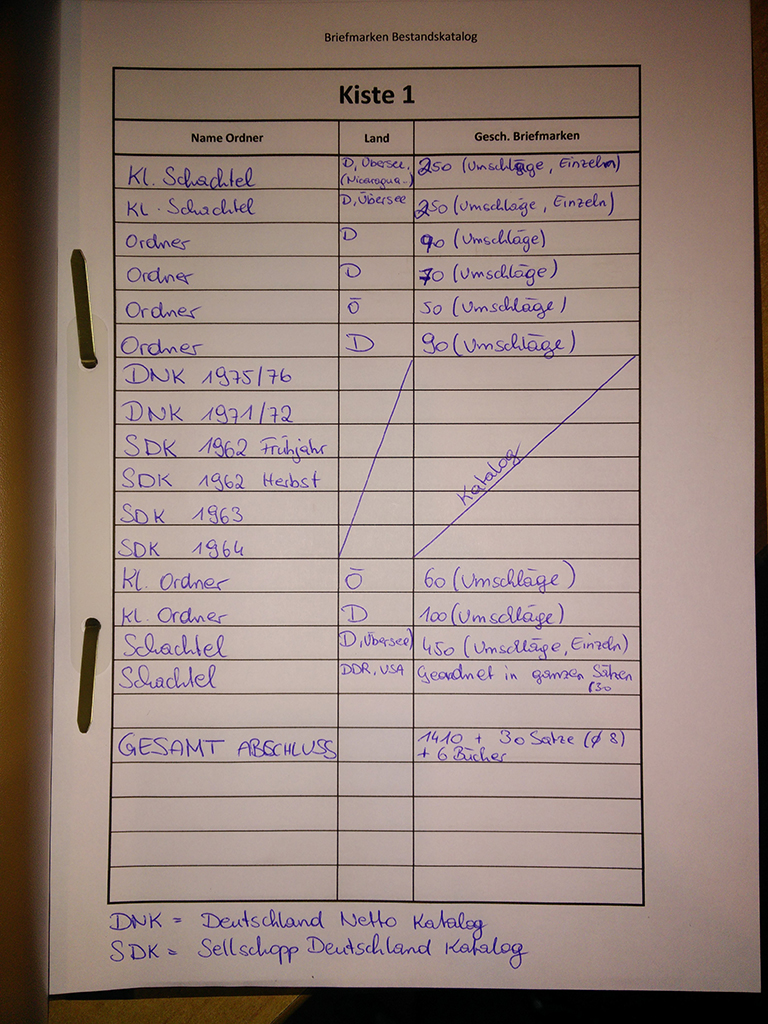 Briefmarken Bestandskatalog
Kiste 1
Name Ordner Land Gesch. Briefmarken
Kl. Schachtel D, Übersee. (Nicaragua..) 250 (Umschläge, Einzeln)
Kl. Schachtel D, Übersee 250 (Umschläge, Einzeln)
Ordner D 90 (Umschläge)
Ordner D 70 (Umschläge)
Ordner Ö 50 (Umschläge)
Ordner D 90 (Umschläge)
DNK 1975/76
DNK 1971/72
SDK 1962 Frühjahr
SDK 1962 Herbst
Katalog
SDK 1963
SDK 1964
Kl. Ordner Ö 60 (Umschläge)
Kl. Ordner D 100 (Umschläge)
Schachtel D, Übersee) 450 (Umschläge, Einzeln)
Schachtel DDR, USA Geordnet in ganzen Sätzen
(30
GESAMT ABSCHLUSS 1410 + 30 Sätze (ø 8)
+ 6 Bücher
DNK = Deutschland Netto Katalog
SDK = Sellschopp Deutschland Katalog